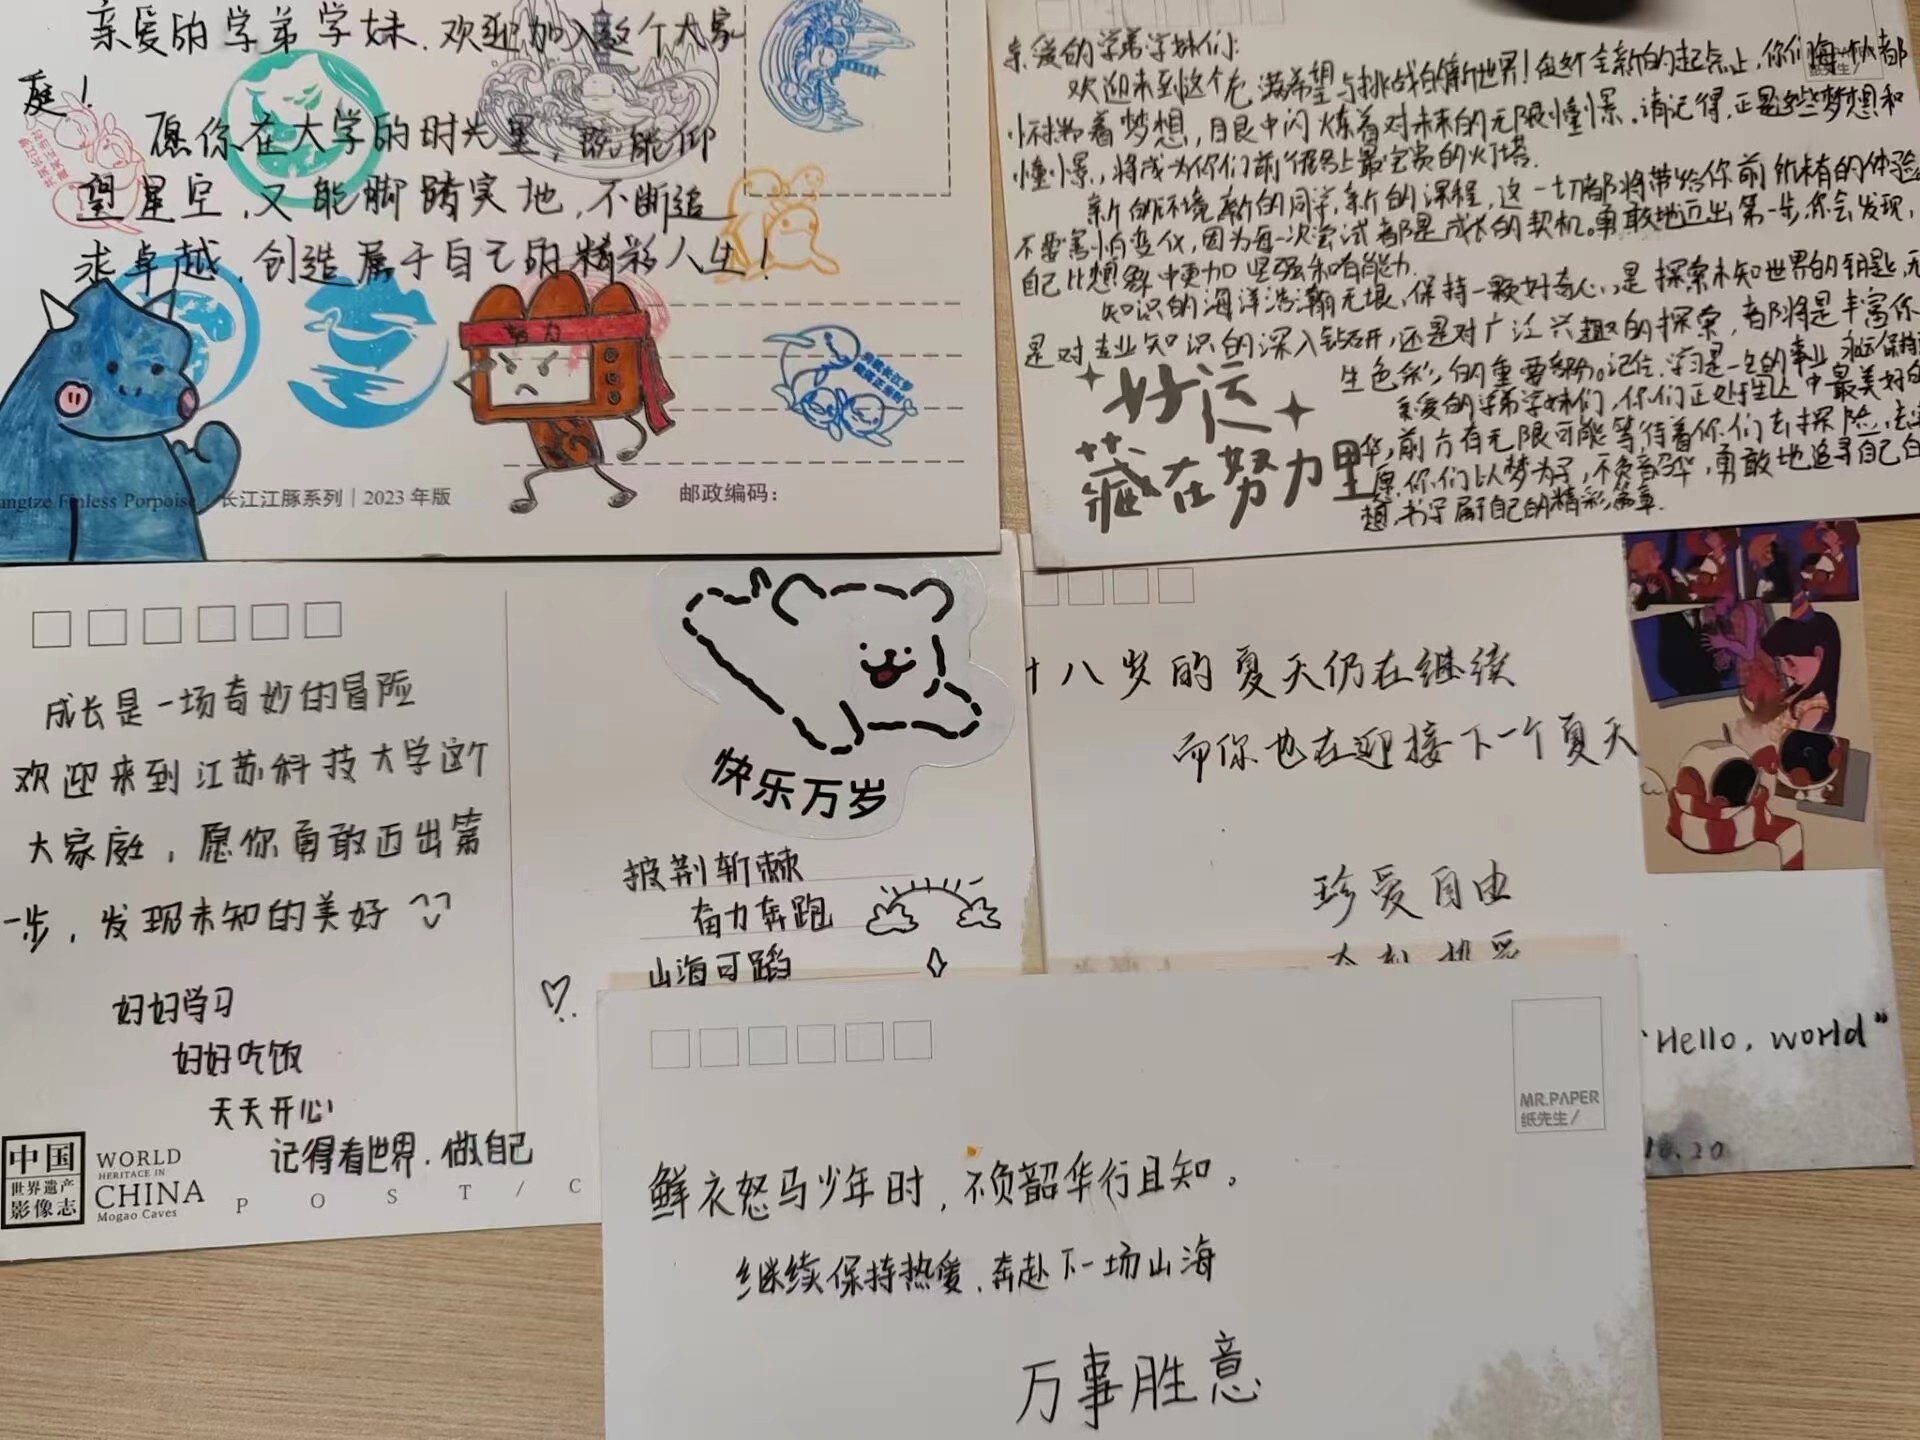 亲爱的学弟学妹，欢迎加入这个大家
庭！
愿你在大学的时光里，既能仰
望星空，又能脚踏实地，不断追
求卓越，创造属于自己的精彩人生！
努力
Yangtze Finless Porpoise 长江江豚系列｜2023 年版
邮政编码：
亲爱的学弟学妹们：
欢迎来到这个充满希望与挑战的新世界！在这个全新的起点上，你们每一个人都
怀揣着梦想，目光中闪烁着对未来的无限憧憬。请记得，正是这些梦想和
憧憬，将成为你们前行路上最宝贵的灯塔。
新的环境，新的同学，新的课程，这一切都将带给你前所未有的体验
不要害怕变化，因为每一次尝试都是成长的契机。勇敢地迈出第一步，你会发现，
自己比想象中更加坚强和有能力。
知识的海洋浩瀚无垠，保持一颗好奇心，是探索未知世界的钥匙，无
是对专业知识的深入钻研，还是对广泛兴趣的探索，都将是丰富你
生色彩的重要部分。记住，学习是一生的事业，永远保持
亲爱的学弟学妹们，你们正处于生命中最美好的
华，前方有无限可能等待着你们去探险，去
愿你们以梦为马，不负韶华，勇敢地追寻自己的
想，书写属于自己的精彩篇章.
好运
藏在努力里
成长是一场奇妙的冒险
欢迎来到江苏科技大学这个
大家庭，愿你勇敢迈出第
一步，发现未知的美好
好好学习
好好吃饭
天天开心
记得看世界，做自己
中国
世界遗产
影像志
WORLD
HERITAGE IN
CHINA
Mogao Caves
POST/C
快乐万岁
披荆斩棘
奋力奔跑
山海可蹈
十八岁的夏天仍在继续
而你也在迎接下一个夏天
珍爱自由
"Hello, world"
10.20
MR.PAPER
纸先生/
鲜衣怒马少年时，不负韶华行且知。
继续保持热爱，奔赴下一场山海
万事胜意